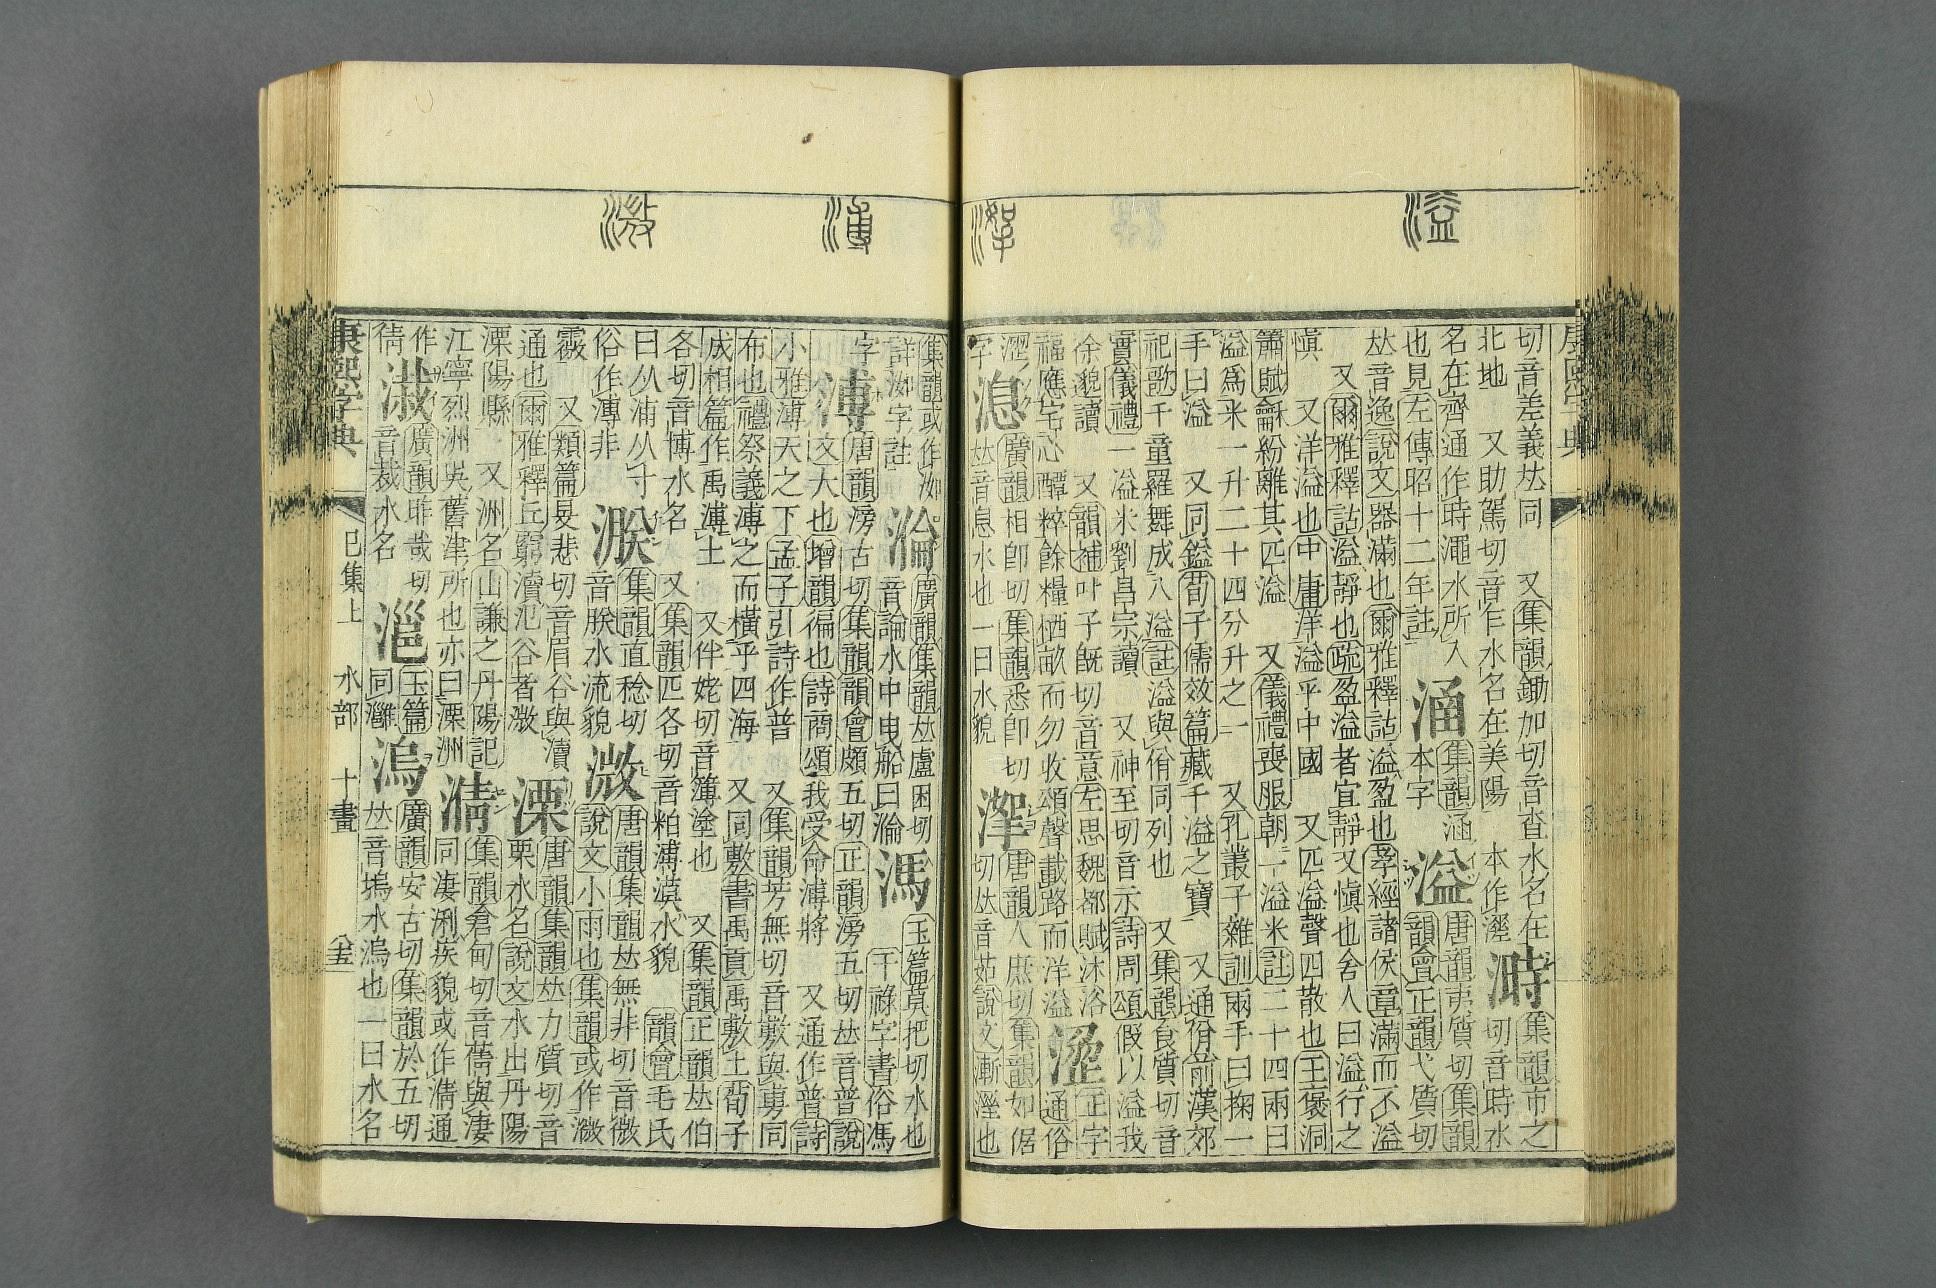 切音差義𠀤同　又集韻鋤加切音査水名在
北地　又助駕切音乍水名在美陽　本作溠
溡集韻市之
切音時水
名在齊通作時澠水所入
也見左傳昭十二年註
涵集韻涵
本字
溢唐韻夷質切集韻
韻會正韻弋質切
𠀤音逸說文器滿也爾雅釋詁溢盈也孝經諸侯章滿而不溢
又爾雅釋詁溢靜也疏盈溢者宜靜又愼也舍人曰溢行之
愼　又洋溢也中庸洋溢乎中國　又匹溢聲四散也王褒洞
簫賦龢紛離其匹溢　又儀禮喪服朝一溢米註二十四兩曰
溢爲米一升二十四分升之一　又孔叢子雜訓兩手曰掬一
手曰溢　又同鎰荀子儒效篇藏千溢之寶　又通佾前漢郊
祀歌千童羅舞成八溢註溢與佾同列也　又集韻食質切音
實儀禮一溢米劉昌宗讀　又神至切音示詩周頌假以溢我
徐邈讀　又韻補叶于旣切音意左思魏都賦沐浴
福應宅心醰粹餘糧栖畝而勿收頌聲載路而洋溢
正字
通俗
澀
字
廣韻相卽切集韻悉卽切
𠀤音息水也一曰水貌
唐韻人庶切集韻如倨
切𠀤音茹說文漸溼也
集韻或作洳
詳洳字註
溣廣韻集韻𠀤盧困切
音論水中曳船曰溣
溤玉篇莫把切水也
干祿字書俗馮
字
溥唐韻滂古切集韻韻會頗五切正韻滂五切𠀤音普說
文大也增韻徧也詩商頌我受命溥將　又通作普詩
小雅溥天之下孟子引詩作普　又集韻芳無切音敷與尃同
布也禮祭義溥之而橫乎四海　又同敷書禹貢禹敷土荀子
成相篇作禹溥土　又伴姥切音簿塗也　又集韻正韻𠀤伯
各切音博水名　又集韻匹各切音粕溥漠水貌　韻會毛氏
曰从浦从寸
俗作溥非
集韻直稔切
音朕水流貌
溦唐韻集韻𠀤無非切音微
說文小雨也集韻或作
霺　又類篇旻悲切音眉谷與瀆
通也爾雅釋丘窮瀆汜谷者溦
溧唐韻集韻𠀤力質切音
栗水名說文水出丹陽
溧陽縣　又洲名山謙之丹陽記
江寧烈洲吳舊津所也亦曰溧洲
集韻倉甸切音蒨與淒
同淒浰疾貌或作淸通
作
倩
溨廣韻昨哉切
音裁水名
玉篇
同灉
溩廣韻安古切集韻於五切
𠀤音塢水溩也一曰水名
康熙字典　巳集上　水部　十畫